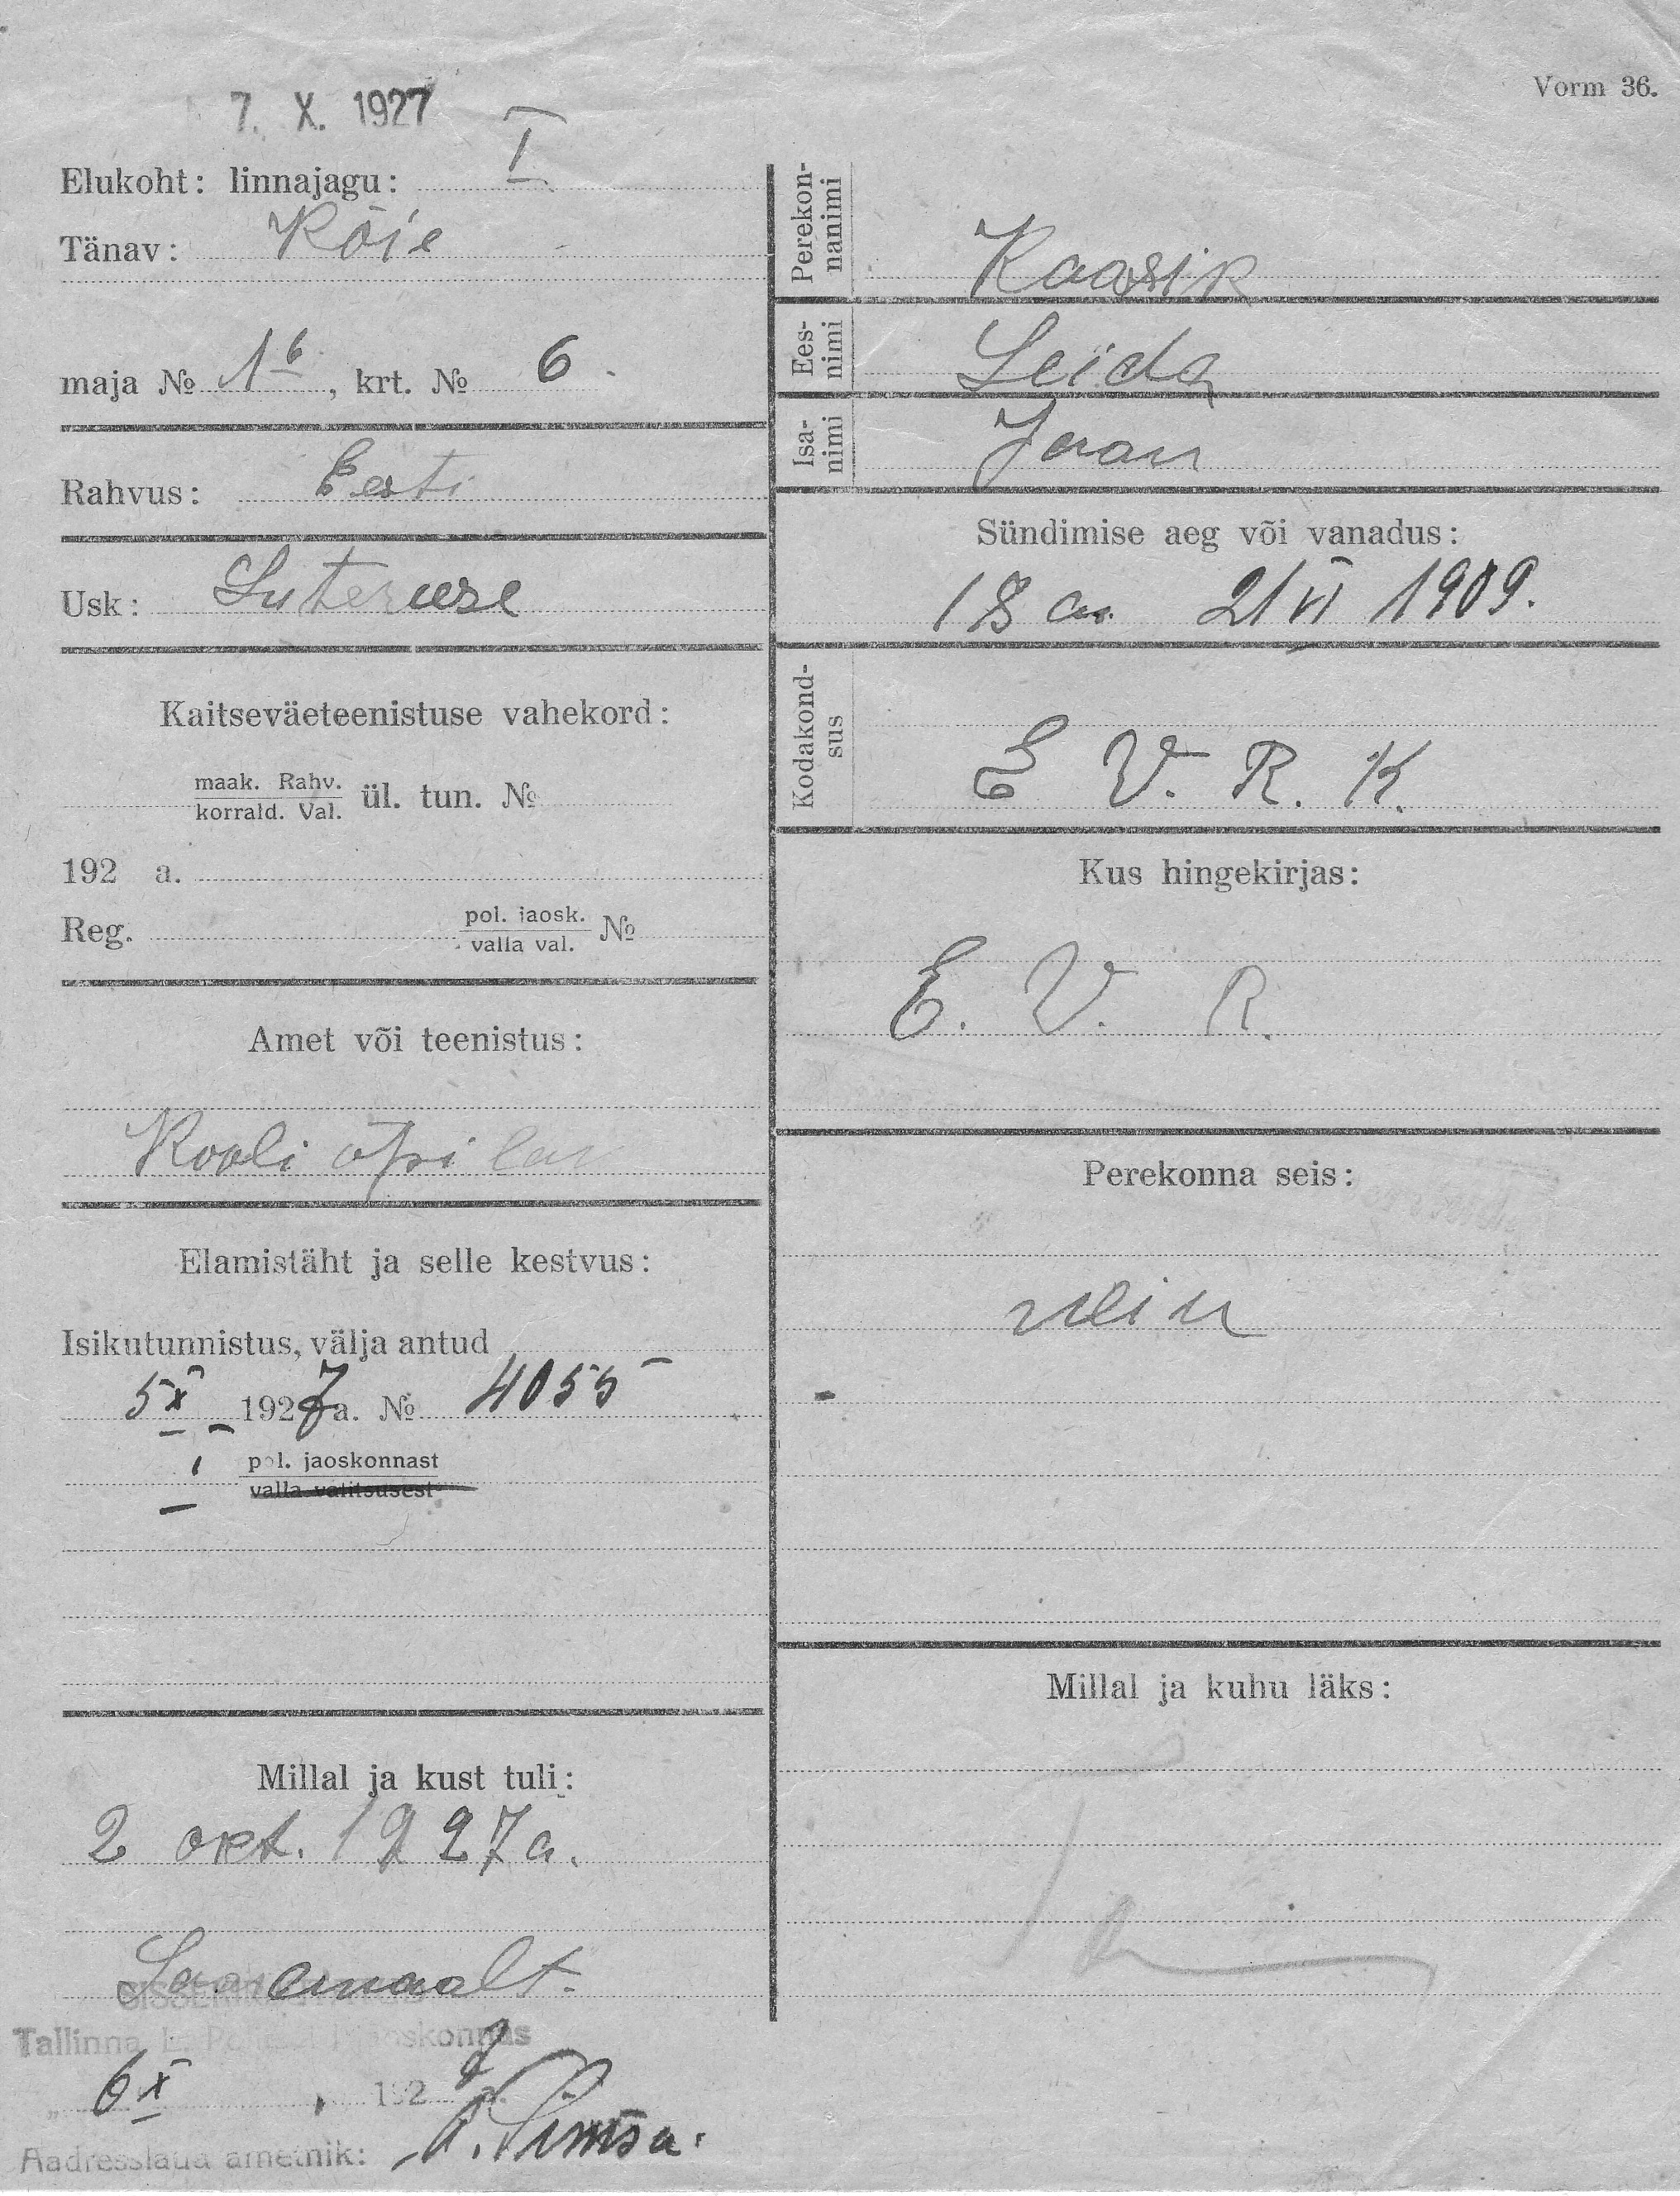 7. X. 1927
Vorm 36.
Elukoht: linnajagu: I
Tänav: Kõie
maja № 1b, krt. № 6.
Rahvus: Eesti
Usk: Luteruse
Kaitseväeteenistuse vahekord:
maak. Rahv.
korrald. Val. ül. tun. №
192 a.
Reg. pol. jaosk.
valla val. №
Amet või teenistus:
Kooli õpilan
Elamistäht ja selle kestvus:
Isikutunnistus, välja antud
5 X 1927 a. № 4055
I pol. jaoskonnast
valla valitsusest
Millal ja kust tuli:
2 okt. 1927 a.
Saaremaalt.
Tallinna I. Politsei Jaoskonnas
„6 X 1927 a.
Aadresslaua ametnik:
Perekon-
nanimi
Kaasik
Ees-
nimi
Leida
Isa-
nimi
Jaan
Sündimise aeg või vanadus:
18 a. 21 VI 1909.
Kodakond-
sus
E V. R. K.
Kus hingekirjas:
E. V. R.
Perekonna seis:
neiu
Millal ja kuhu läks: